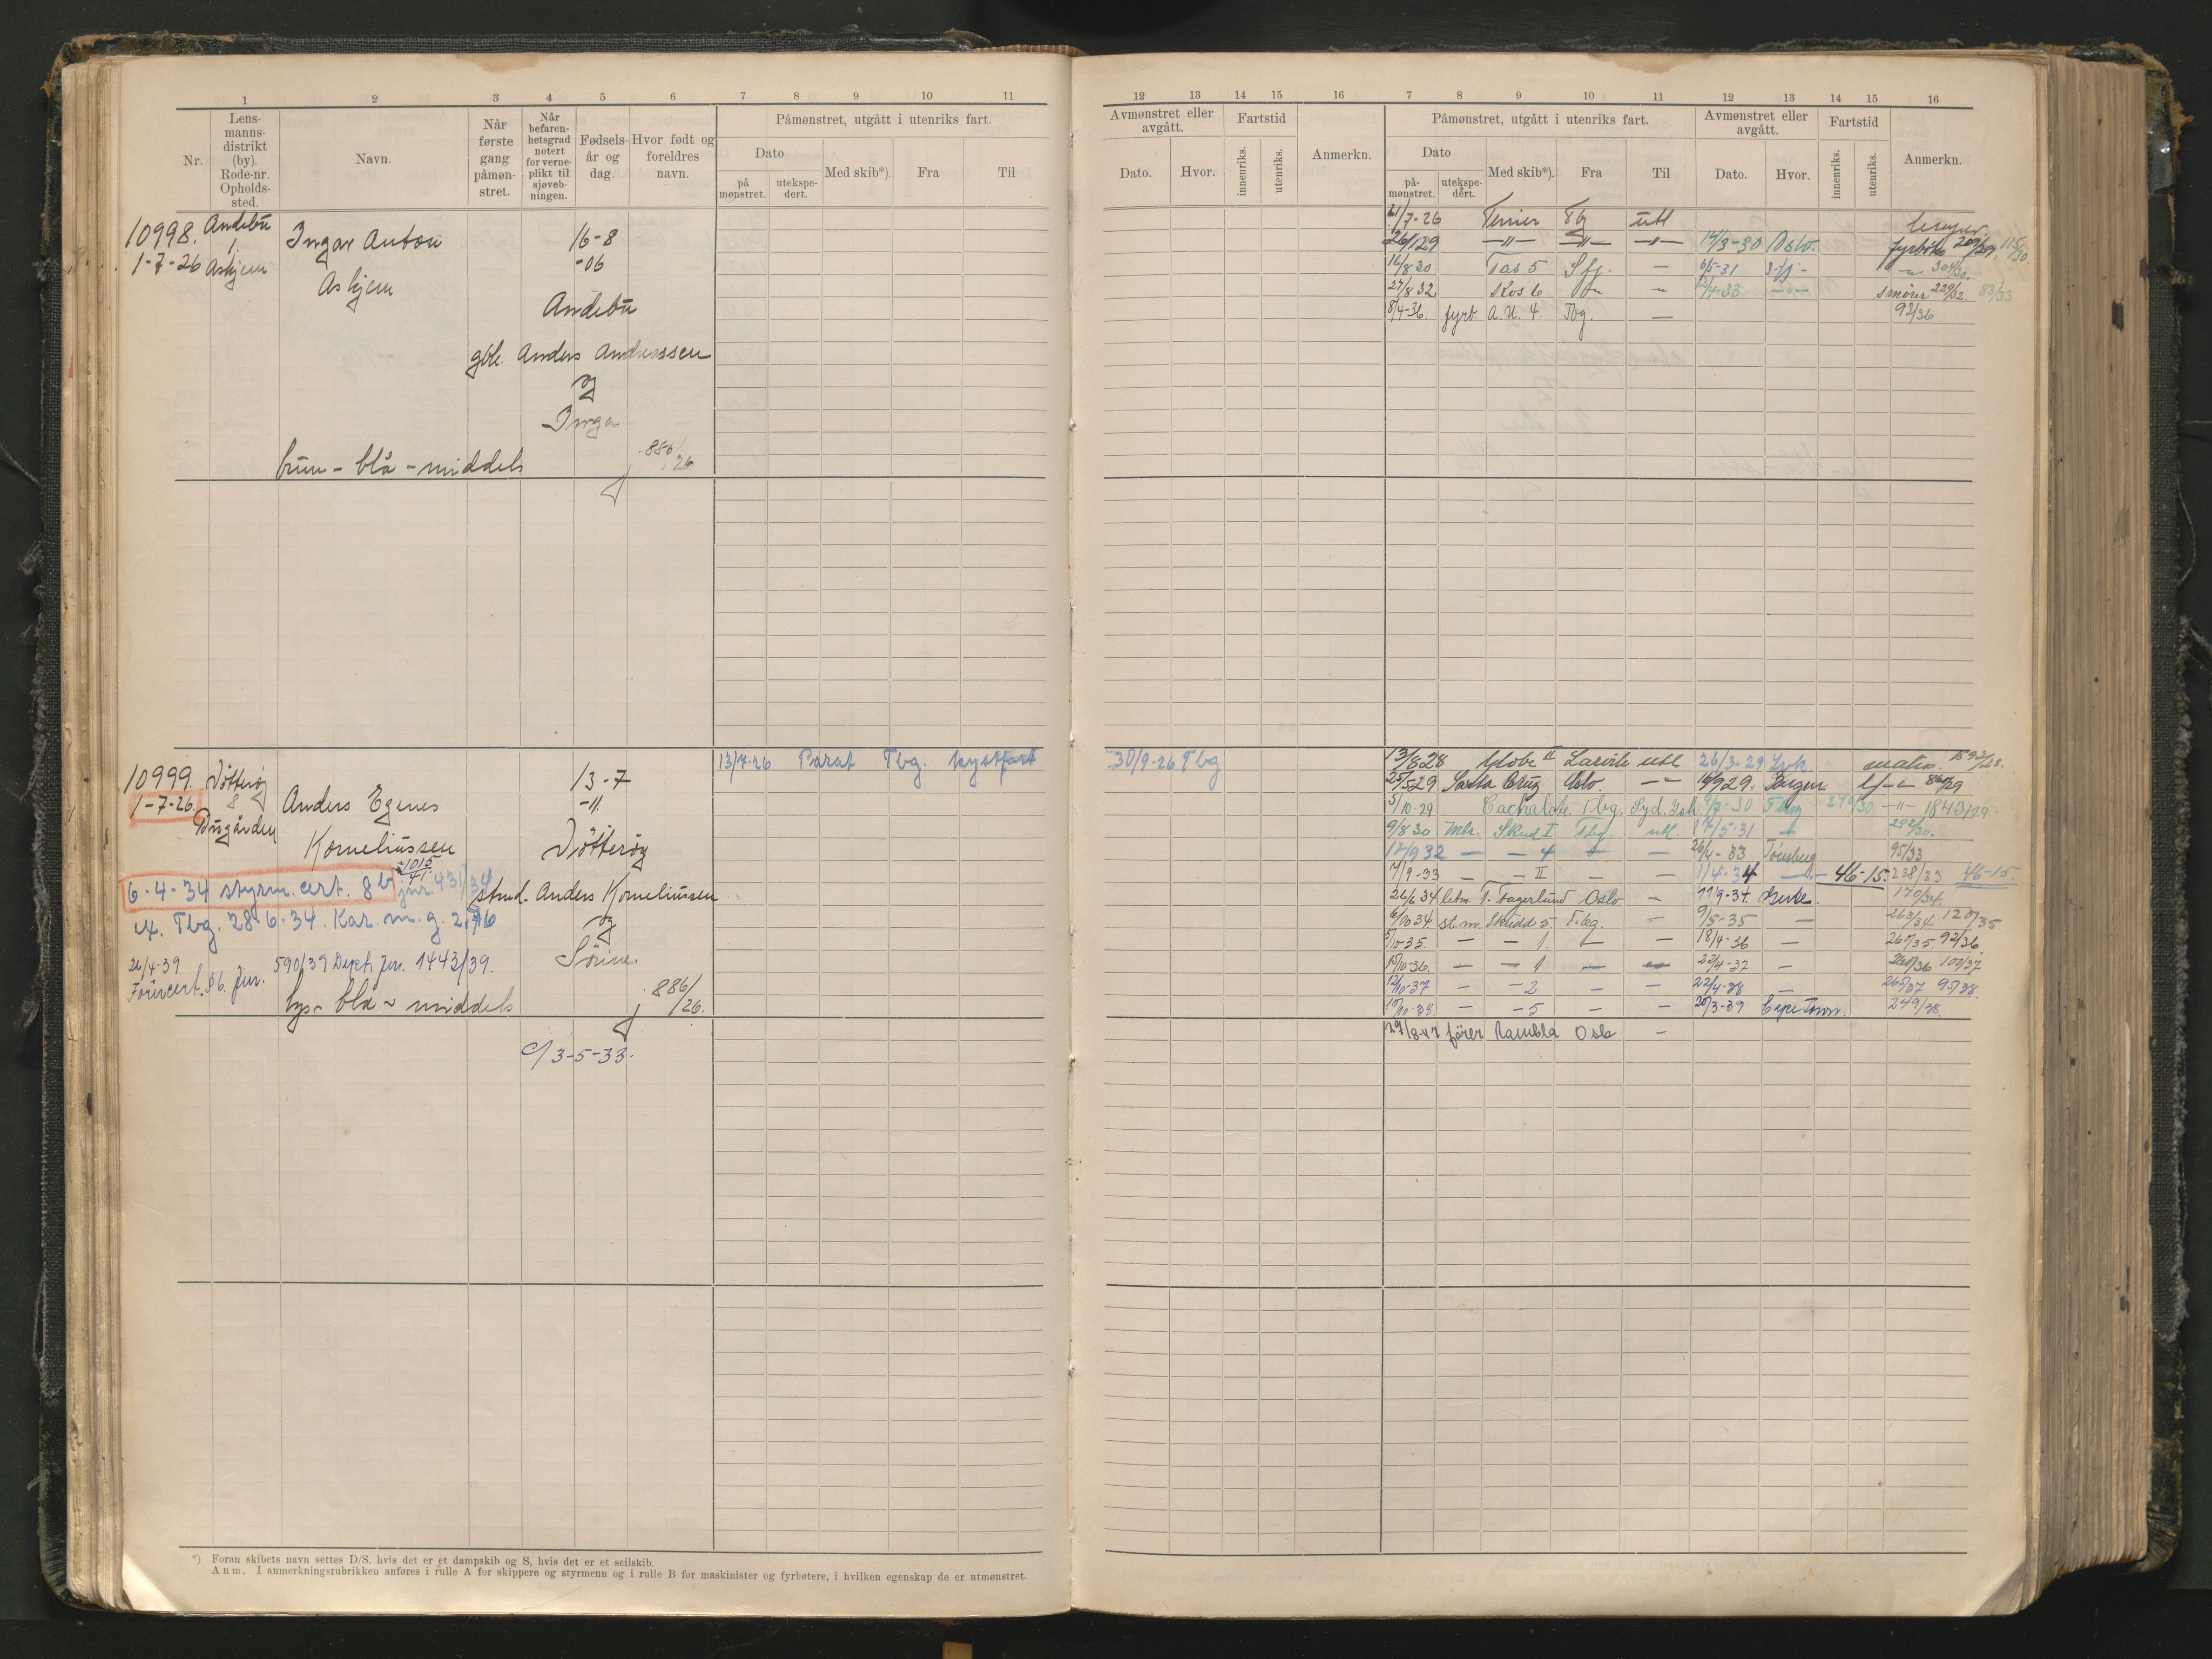 1 2 3 4 5 6 7 8 9 10 11
Nr.
Lens-
manns-
distrikt
(by).
Rode-nr.
Opholds-
sted.
Navn.
Når
første
gang
påmøn-
stret.
Når
befaren-
hetsgrad
notert
for verne-
plikt til
sjøveb-
ningen.
Fødsels-
år og
dag.
Hvor født og
foreldres
navn.
Påmønstret, utgått i utenriks fart.
Dato
på
mønstret.
utekspe-
dert.
Med skib*).
Fra
Til
10998. Andebu
1.
1-7-26 Askjem
Ingar Anton
Askjem
16-8
-06
Andebu
gbr. Anders Andreassen
og
Inga
brun - blå - middels
880/26
10999. Nøtterøy
8
1-7-26.
Bugården
Anders Egenes
Korneliussen
13-7
-11.
Nøtterøy
1015/41
6-4-34 styrm. cert. 8b jnr 431/34
strud. Anders Korneliussen
Tbg. 28-6-34. Kar. m. g. 2.46
og
Sörine
26/4-39 590/39 Dept. Jnr. 1443/39.
Förercert. §6. Jnr.
lys - blå - middels
886/26.
c/ 3-5-33.
13/7-26 Parat Tbg. kystfart
*) Foran skibets navn settes D/S, hvis det er et dampskib og S, hvis det er et seilskib.
Anm. I anmerkningsrubrikken anføres i rulle A for skippere og styrmenn og i rulle B for maskinister og fyrbøtere, i hvilken egenskap de er utmønstret.
12 13 14 15 16 7 8 9 10 11 12 13 14 15 16
Avmønstret eller
avgått.
Dato. Hvor.
Fartstid
innenriks.
utenriks.
Anmerkn.
Påmønstret, utgått i utenriks fart.
Dato
på-
mønstret.
utekspe-
dert.
Med skib*).
Fra
Til
Avmønstret eller
avgått.
Dato. Hvor.
Fartstid
innenriks.
utenriks.
Anmerkn.
/7-26 Terrier Tbg utl
26/129 -"- -"- -"- 14/3-30 Oslo. fyrböter 209/29. 115/30
16/8 30 Tas 5 Sfj. - 6/5-31 Sfj - -"- 304/30.
27/8 32 Kos 6 -"- -"- /4-33 -"- smörer 229/32. 83/33
8/4-36. fyrb. A.N. 4. Tbg. - 92/36
30/9-26 Tbg
13/8 28 Globe II Larvik utl 26/3-29 Lvk matros.
25/5 29 Santa Cruz Oslo. -"- 16/9 29. Bergen
5/10-29 Cachalote. Tbg. Syd. Ish. 9/7-30 Tbg 270/30 -"- 1843/29
9/8 30 Mtr. Skud I Tbg. utl. 17/5-31 - 292/30.
17/9 32 - - 4 - - 26/4-33 Tönsberg 95/33
11/9-33 - - II - - 1/4-34 - - 46-15. 238/33 46-15.
26/6 34 T. Fagerlund Oslo - 11/9-34. 170/34.
6/10 34 st.m. Skudd 5 Tbg. - 9/5-35 - 263/34. 120/35
5/10 35. - - 1. - - 18/4-36 - 265/35. 92/36.
15/10-36. - - 1 - - 22/4-37 - 268/36 100/37
12/10-37 - - 2 - - 22/4-38 - 265/37 95/38
15/10-38. - - 5 - - 20/3-39 Cape Town. 249/38.
29/8-47 förer Rambla Oslo -